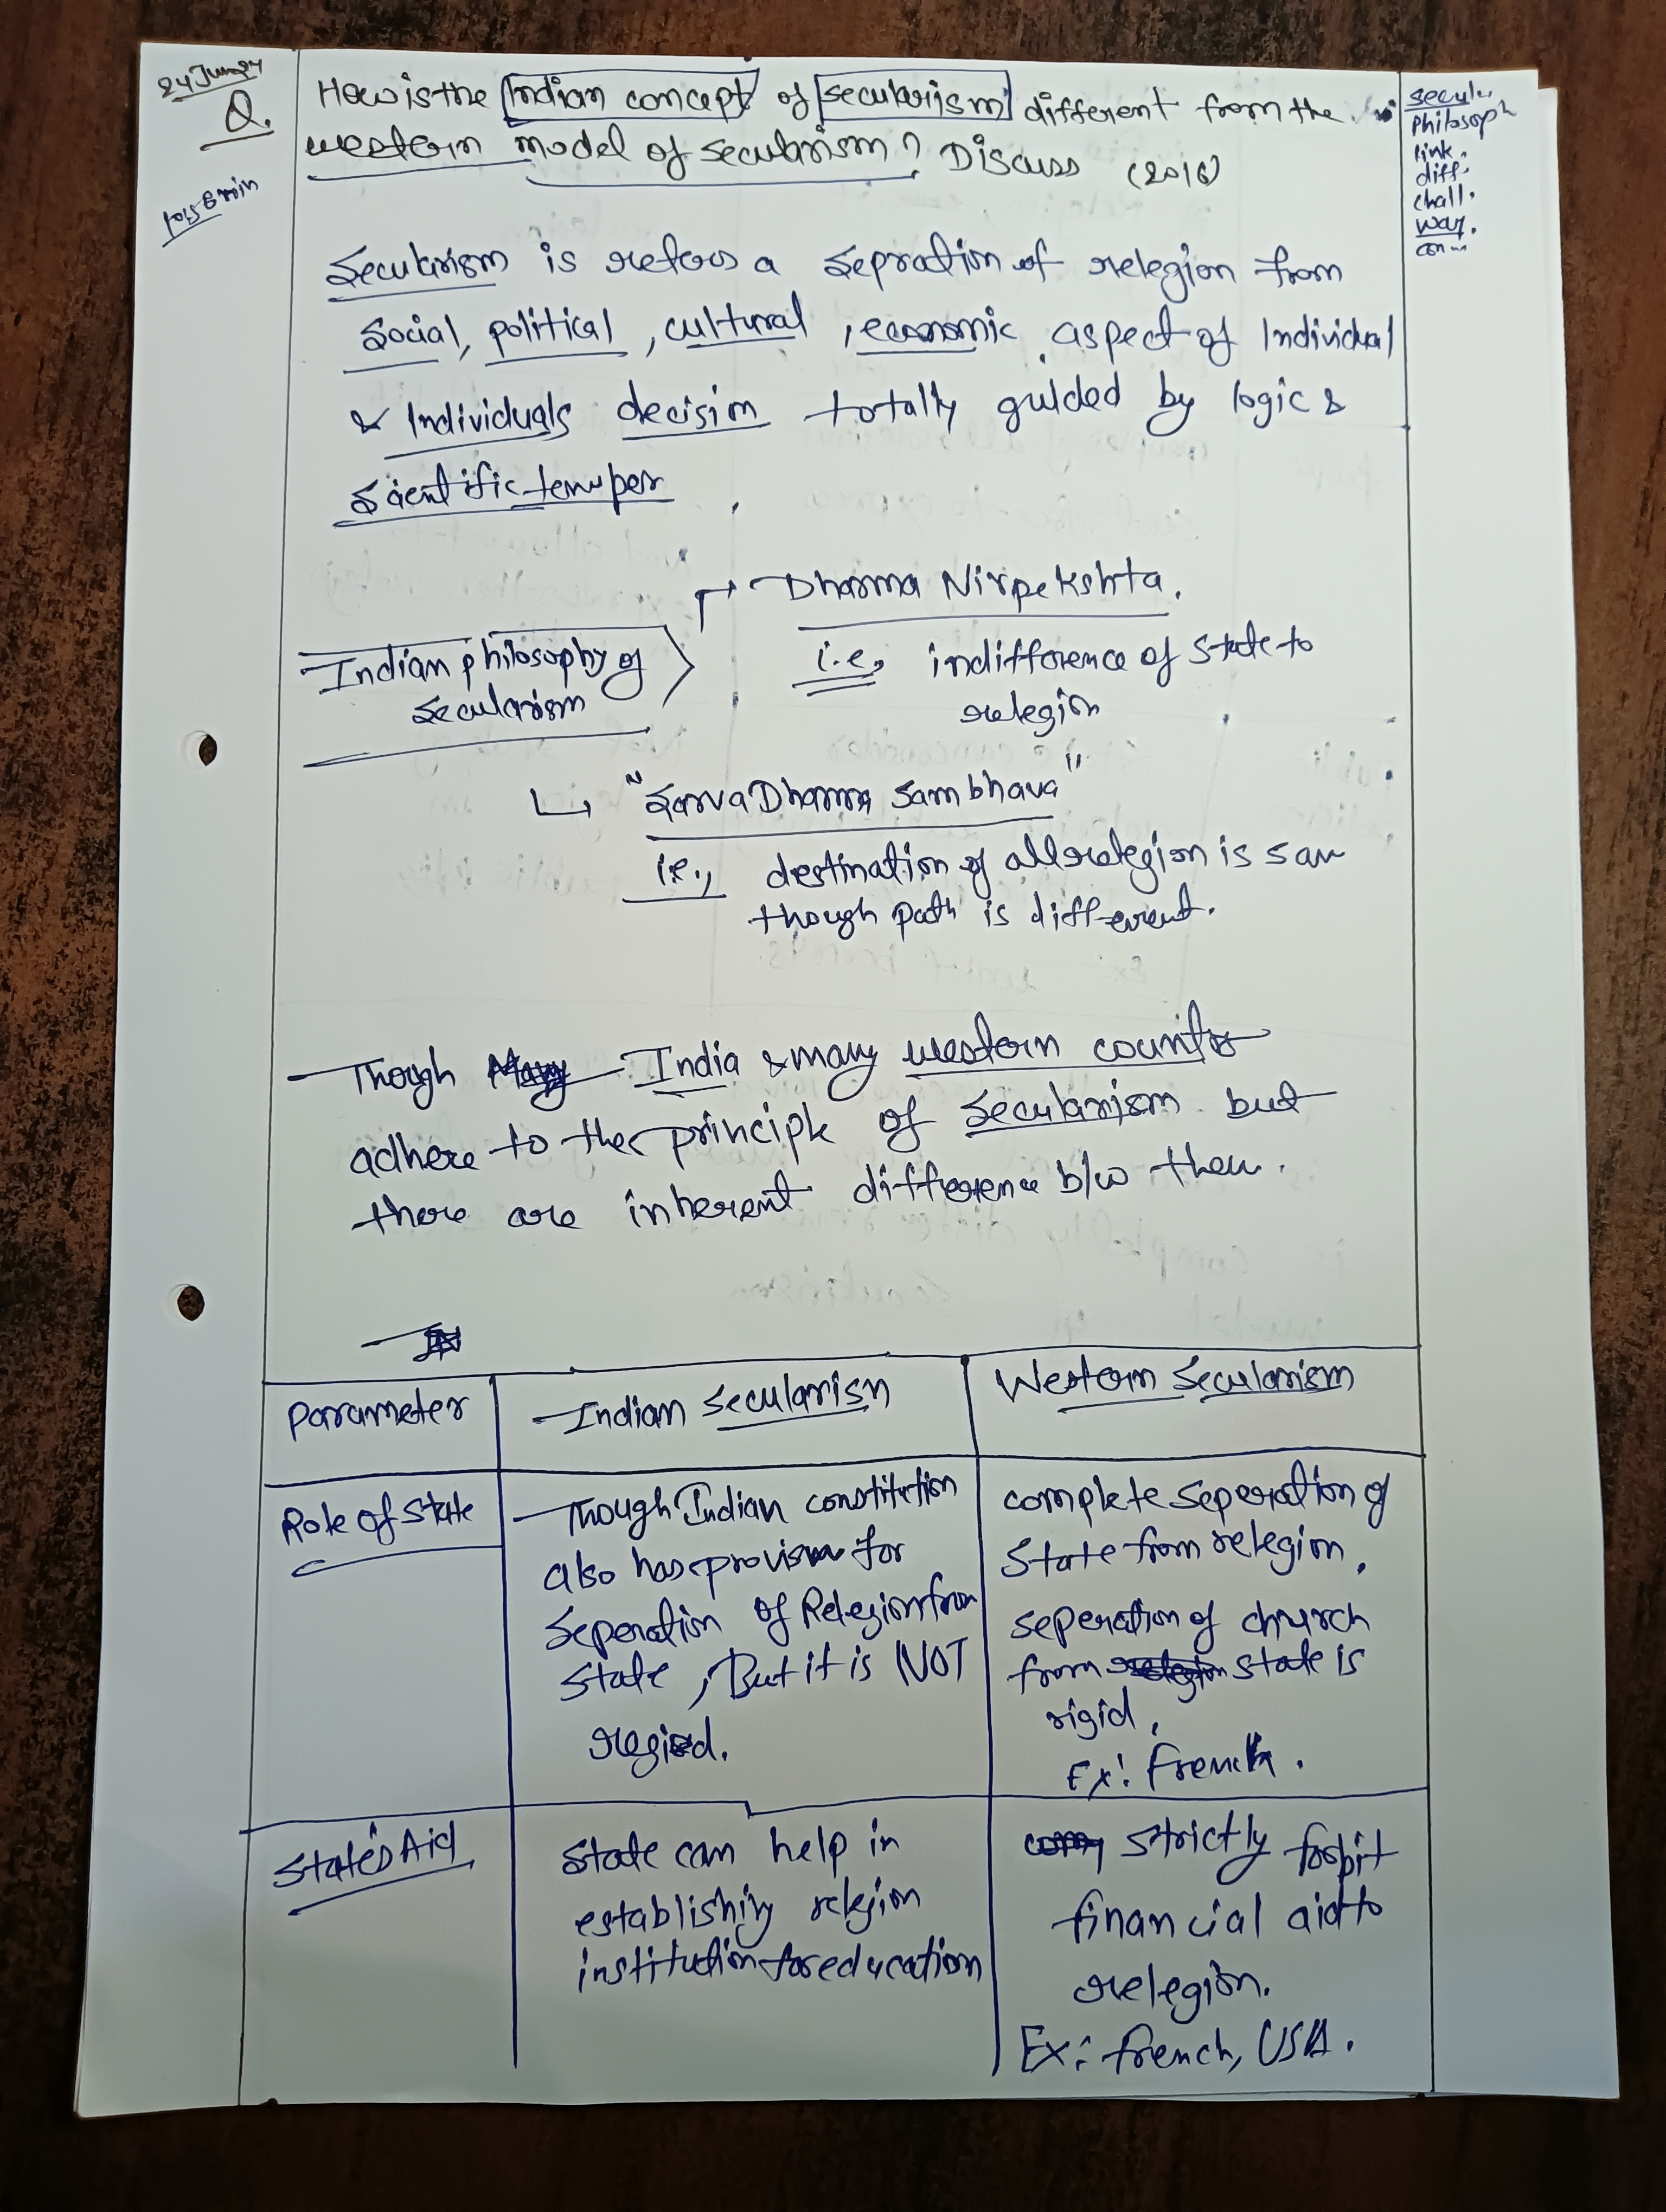 24 Jun 24
Q.
How is the Indian concept of secularism different from the
western model of secularism? Discuss (2016)
secul.
Philosoph
link.
diff.
chall.
way.
con...
Secularism is refers a sepration of relegion from
social, political, cultural, economic aspect of Individual
& Individuals decision totally guided by logic &
scientific temper
Dharma Nirpekshta.
Indian philosophy of
secularism
i.e, indifference of state to
relegion
"Sarva Dharma Sambhava"
i.e., destination of all relegion is sam
though path is different.
Though India & many western countrs
adhere to the principle of secularism but
there are inherent difference b/w them.
Parameter
Indian secularism
Western Secularism
Role of State
Though Indian constitution
also has provison for
seperation of Relegion from
state, But it is NOT
regied.
complete seperation of
state from relegion,
seperation of church
from state is
rigid,
Ex: French.
State's Aid
state can help in
establishing relegion
institution for education
strictly forbit
financial aid to
relegion.
Ex: french, USA.